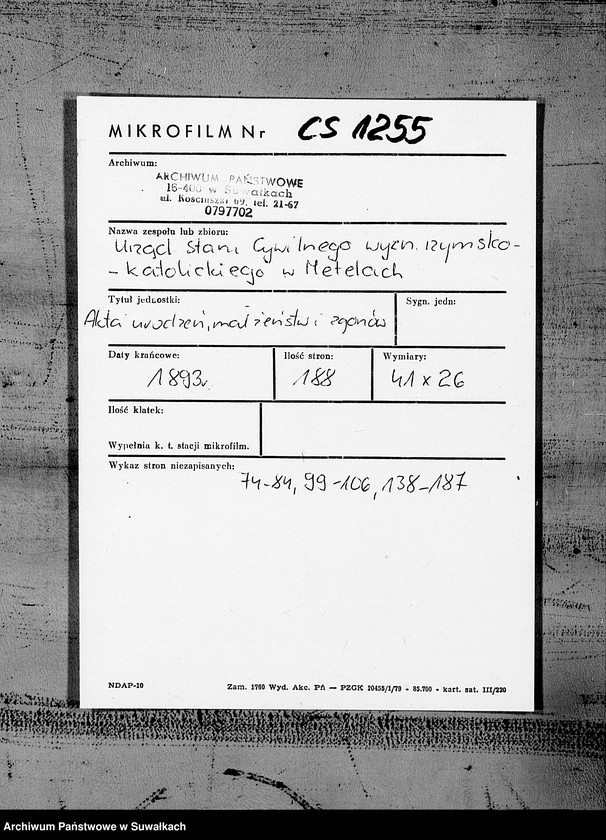 MIKROFILM Nr CS 1255
Archiwum:
ARCHIWUM PAŃSTWOWE
16-400 w Suwałkach
ul. Kościuszki 69, tel. 21-67
0797702
Nazwa zespołu lub zbioru:
Urząd Stanu Cywilnego wyzn. rzymsko-
- katolickiego w Metelach
Tytuł jednostki:
Akta urodzeń, małżeństw i zgonów
Sygn. jedn:
Daty krańcowe:
1893r.
Ilość stron:
188
Wymiary:
41 x 26
Ilość klatek:
Wypełnia k. t. stacji mikrofilm.
Wykaz stron niezapisanych:
74-84, 99-106, 138-187
NDAP-10
Zam. 1760 Wyd. Akc. Pń — PZGK 20455/I/79 - 85.700 - kart. sat. III/220
Archiwum Państwowe w Suwałkach